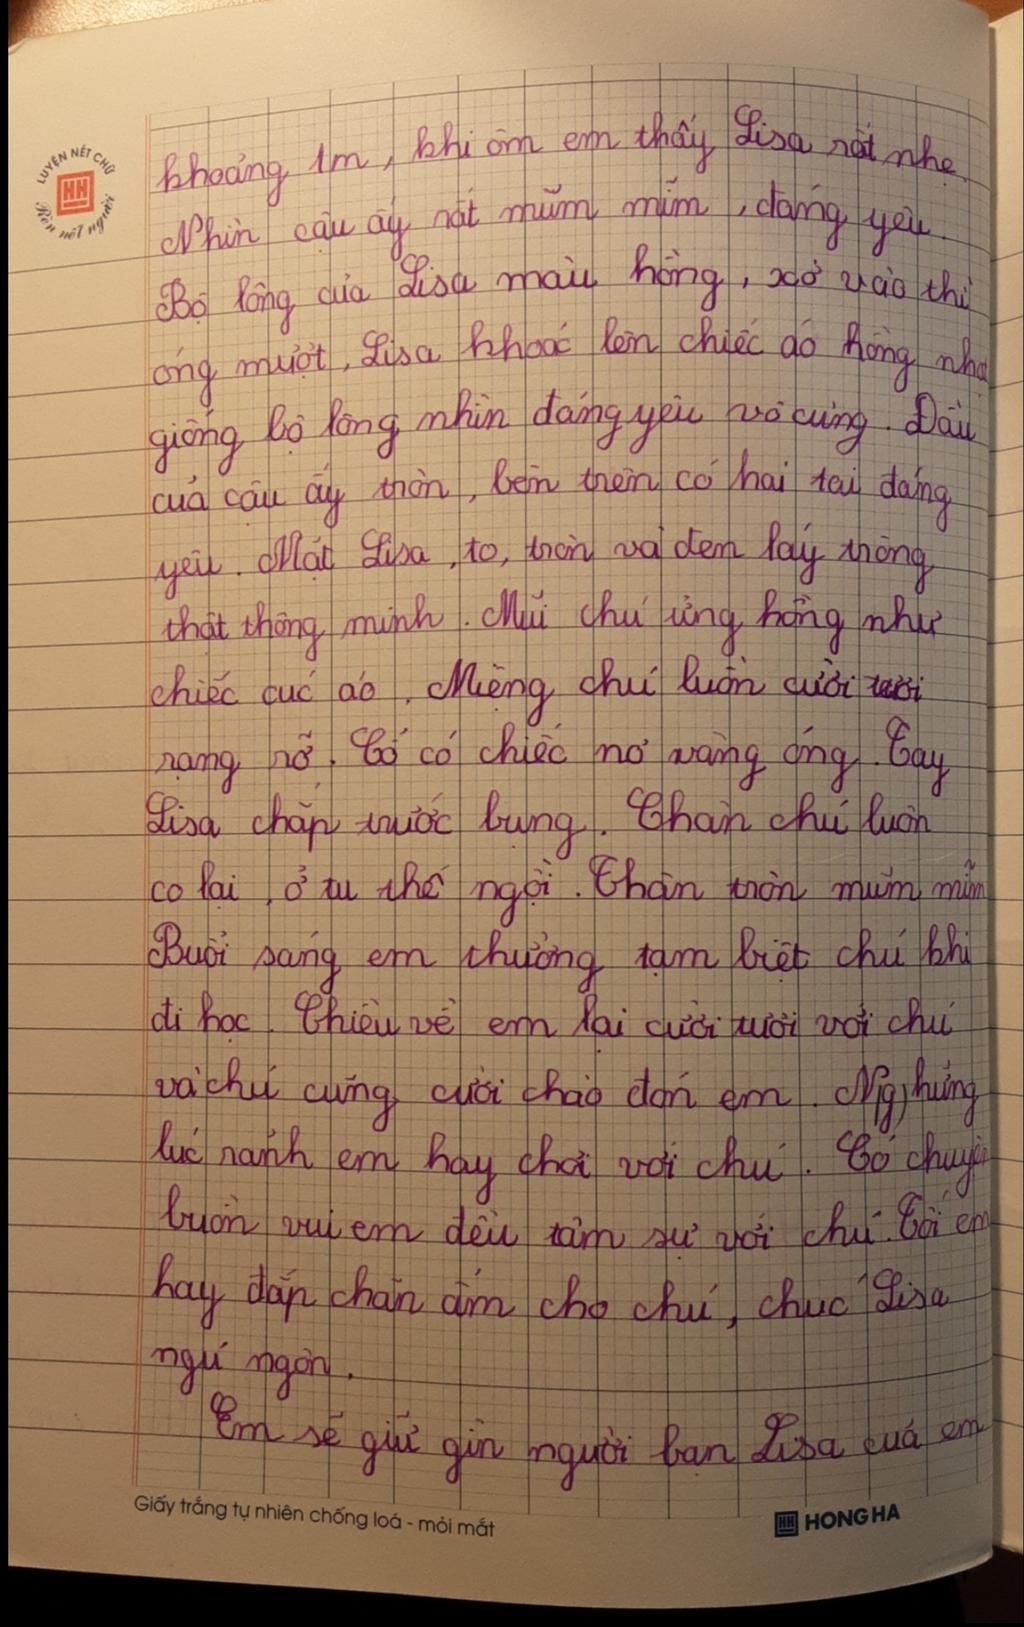 LUYỆN NÉT CHỮ
Rèn nết người
khoảng 1m, khi ôm em thấy Lisa rất nhẹ.
Nhìn cậu ấy rất mũm mĩm, đáng yêu.
Bộ lông của Lisa màu hồng, xờ vào thì
óng mượt, Lisa khoác lên chiếc áo hồng nhạ
giống bộ lông nhìn đáng yêu vô cùng. Đầu
của cậu ấy tròn, bên trên có hai tai đáng
yêu. Mắt Lisa, to, tròn và đen láy trông
thật thông minh. Mũi chú ửng hồng như
chiếc cúc áo. Miệng chú luôn cười tươi
rạng rỡ. Cổ có chiếc nơ vàng óng. Tay
Lisa chắp trước bụng. Chân chú luôn
co lại, ở tư thế ngồi. Thân tròn mũm mĩm
Buổi sáng em thường tạm biệt chú khi
đi học. Chiều về em lại cười tươi với chú
và chú cũng cười chào đón em. Những
lúc rảnh em hay chơi với chú. Có chuyện
buồn vui em đều tâm sự với chú. Tối em
hay đắp chăn ấm cho chú, chúc Lisa
ngủ ngon.
Em sẽ giữ gìn người bạn Lisa của em
Giấy trắng tự nhiên chống loá - mỏi mắt
HONG HA